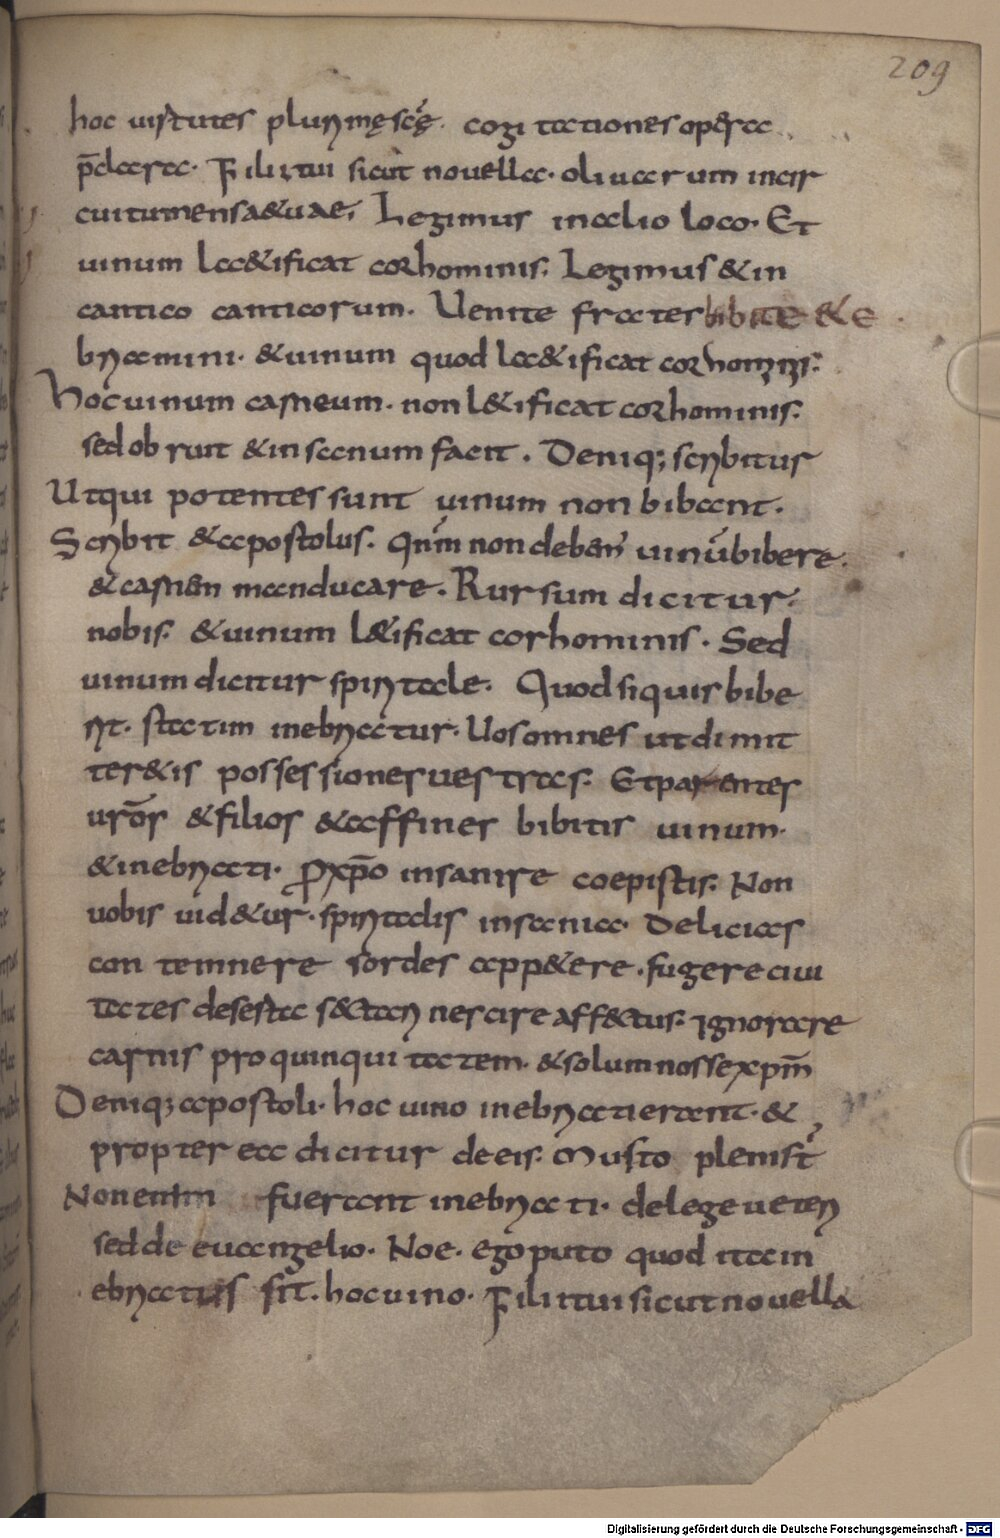 209
hoc uirtutes plurimę scę̄. cogitationes opera
p̄clara. Filii tui sicut nouella oliuarum incir
cuitu mensae tuae. Legimus in alio loco. Et
uinum lae&ificat cor hominis. Legimus & in
cantico canticorum. Uenite frater bibite & e
briamini. & uinum quod lae&ificat cor hominis.
Hoc uinum carneum. non l&ificat cor hominis.
sed obruit & insanum facit. Deniq; scribitur
Ut qui potentes sunt uinum non bibant.
Scribit & apostolus. qn̄m non deben̄ uinū bibere.
& carnem manducare. Rursum dicitur
nobis. & uinum l&ificat cor hominis. Sed
uinum dicitur spiritale. Quod si quis bibe
rit. statim inebriatur. Uos omnes ut dimit
ter&is possessiones uestras. Et parentes
urōs & filios & affines bibitis uinum.
& inebriati. p xp̄o insanire coepistis. Non
uobis uid&ur. spiritalis insania. Delicias
contemnere sordes app&ere. fugere ciui
tates deserta s&tari nescire aff&tus. ignorare
carnis pro quinquitatem. & solum nosse xpm̄
Deniq; apostoli. hoc uino inebriati erant. &
propterea dicitur de eis. Musto pleni st̄
Non enim fuerant inebriati. de lege ueteri
sed de euangelio. Noe. ego puto quod ita in
ebriatus sit. hoc uino. Filii tui sicut nouella
Digitalisierung gefördert durch die Deutsche Forschungsgemeinschaft - DFG